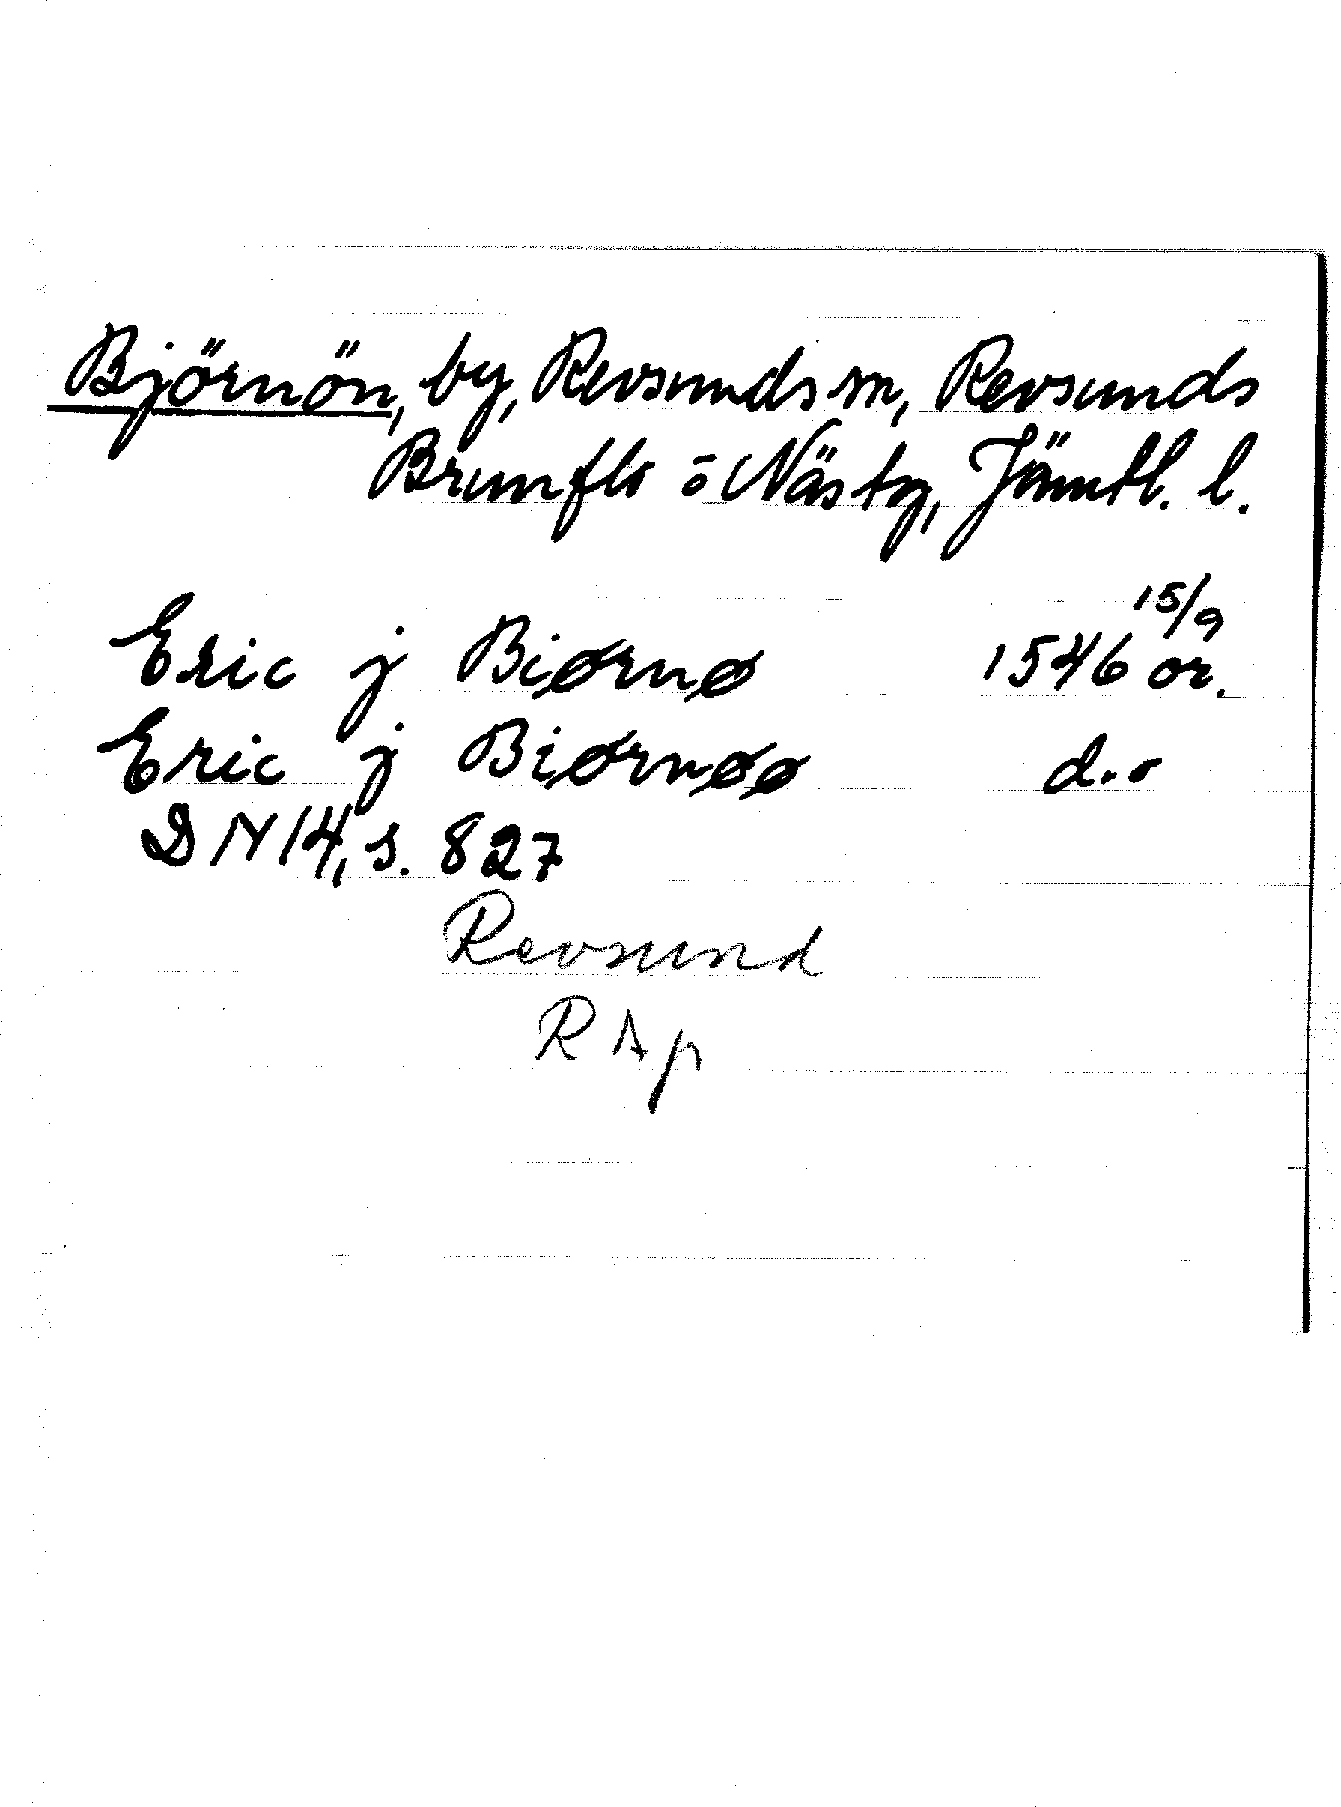 Björnön, by, Revsunds sn, Revsunds
Brunflo o Näs tg, Jämtl. l.
Eric j Biørnø 1546 15/9 or.
Eric j Biørnøø d:o
DN 14, s. 827
Revsund
RAp